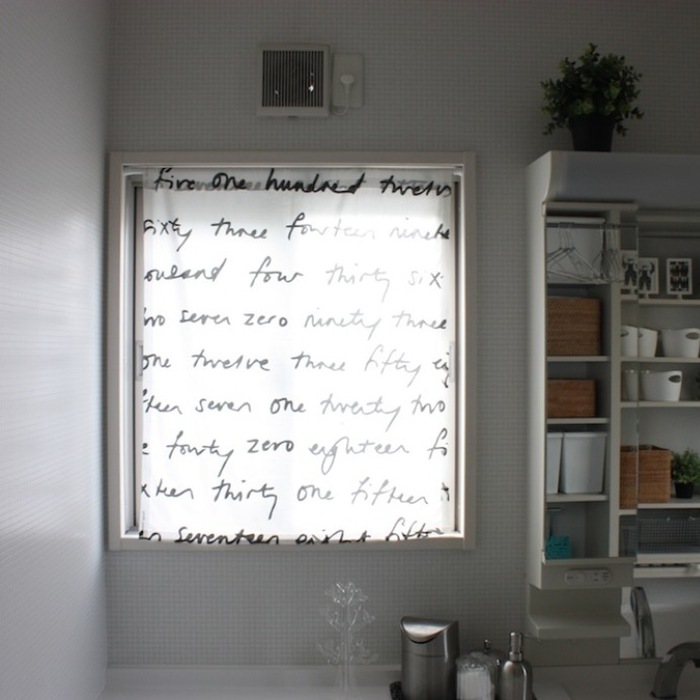 five one hundred twelve
sixty three fourteen ninete
ousand four thirty six
wo seven zero ninety three
one twelve three fifty eig
fteen seven one twenty two
e fourty zero eighteen fi
xteen thirty one fifteen t
n seventeen eight fifte